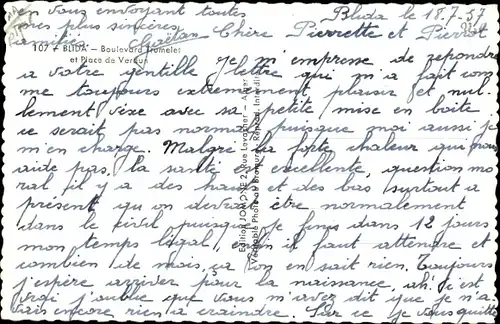 Blida le 18.7.57
Chère Pierrette et Pierrot
Je m'empresse de repondre
a votre gentille lettre qui m'a fait com
me toujours extremement plaisir et nul
lement vexé avec sa petite mise en boite
ce serait pas normal puisque moi aussi j
m'en charge. Malgré la forte chaleur qui nous
aide pas, la santé est excellente, question mo
ral il y a des hauts et des bas surtout a
présent qu on devrait être normalement
dans le civil puisque je finis dans 12 jours
mon temps légal, enfin il faut attendre et
combien de mois, ça l'on en sait rien. Toujours
j'espère arriver pour la naissance, ah. c'est
vrai j'oublie que vous m'avez dit que je n'a
vais encore rien a craindre. Sur ce je vous quitte
en vous envoyant toutes
mes plus sincères
amitiés. Gaëtan
107 - BLIDA - Boulevard Trumelet
et Place de Verdun
Edition JOMONE 2, Rue Livingstone - Alger
Véritable Photo au Bromure - Reprod. Interdite